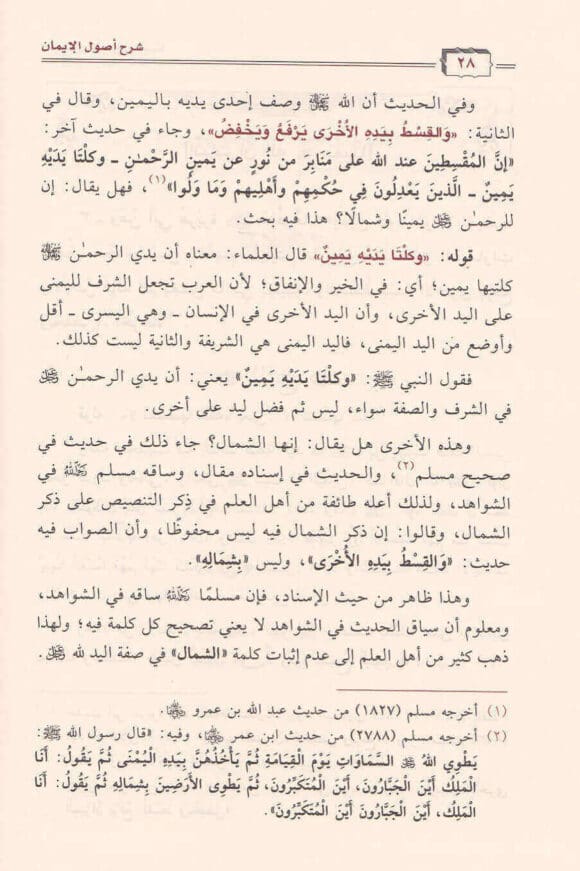 شرح أصول الإيمان
٢٨
وفي الحديث أن الله ﷻ وصف إحدى يديه باليمين، وقال في
الثانية: «وَالقِسْطُ بِيَدِهِ الأُخْرَى يَرْفَعُ وَيَخْفِضُ»، وجاء في حديث آخر:
«إِنَّ المُقْسِطِينَ عند الله على مَنَابِرَ من نُورٍ عن يَمِينِ الرَّحْمَـٰنِ ـ وكِلْتَا يَدَيْهِ
يَمِينٌ ـ الَّذِينَ يَعْدِلُونَ فِي حُكْمِهِمْ وأَهْلِيهِمْ وَمَا وَلُوا»(١)، فهل يقال: إن
للرحمـٰن ﷻ يمينًا وشمالًا؟ هذا فيه بحث.
قوله: «وكِلْتَا يَدَيْهِ يَمِينٌ» قال العلماء: معناه أن يدي الرحمـٰن ﷻ
كلتيها يمين؛ أي: في الخير والإنفاق؛ لأن العرب تجعل الشرف لليمنى
على اليد الأخرى، وأن اليد الأخرى في الإنسان ـ وهي اليسرى ـ أقل
وأوضع من اليد اليمنى، فاليد اليمنى هي الشريفة والثانية ليست كذلك.
فقول النبي ﷺ: «وكِلْتَا يَدَيْهِ يَمِينٌ» يعني: أن يدي الرحمـٰن ﷻ
في الشرف والصفة سواء، ليس ثم فضل ليد على أخرى.
وهذه الأخرى هل يقال: إنها الشمال؟ جاء ذلك في حديث في
صحيح مسلم(٢)، والحديث في إسناده مقال، وساقه مسلم رَحِمَهُ اللَّهُ في
الشواهد، ولذلك أعله طائفة من أهل العلم في ذِكر التنصيص على ذكر
الشمال، وقالوا: إن ذكر الشمال فيه ليس محفوظًا، وأن الصواب فيه
حديث: «وَالقِسْطُ بِيَدِهِ الأُخْرَى»، وليس «بِشِمَالِهِ».
وهذا ظاهر من حيث الإسناد، فإن مسلمًا رَحِمَهُ اللَّهُ ساقه في الشواهد،
ومعلوم أن سياق الحديث في الشواهد لا يعني تصحيح كل كلمة فيه؛ ولهذا
ذهب كثير من أهل العلم إلى عدم إثبات كلمة «الشمال» في صفة اليد لله ﷻ.
(١) أخرجه مسلم (١٨٢٧) من حديث عبد الله بن عمرو
(٢) أخرجه مسلم (٢٧٨٨) من حديث ابن عمر، وفيه: «قال رسول الله ﷺ:
يَطْوِي اللهُ ﷻ السَّمَاوَاتِ يَوْمَ الْقِيَامَةِ ثُمَّ يَأْخُذُهُنَّ بِيَدِهِ الْيُمْنَى ثُمَّ يَقُولُ: أَنَا
المَلِكُ أَيْنَ الْجَبَّارُونَ، أَيْنَ الْمُتَكَبِّرُونَ، ثُمَّ يَطْوِي الأَرَضِينَ بِشِمَالِهِ ثُمَّ يَقُولُ: أَنَا
المَلِك، أَيْنَ الْجَبَّارُونَ أَيْنَ الْمُتَكَبِّرُونَ».